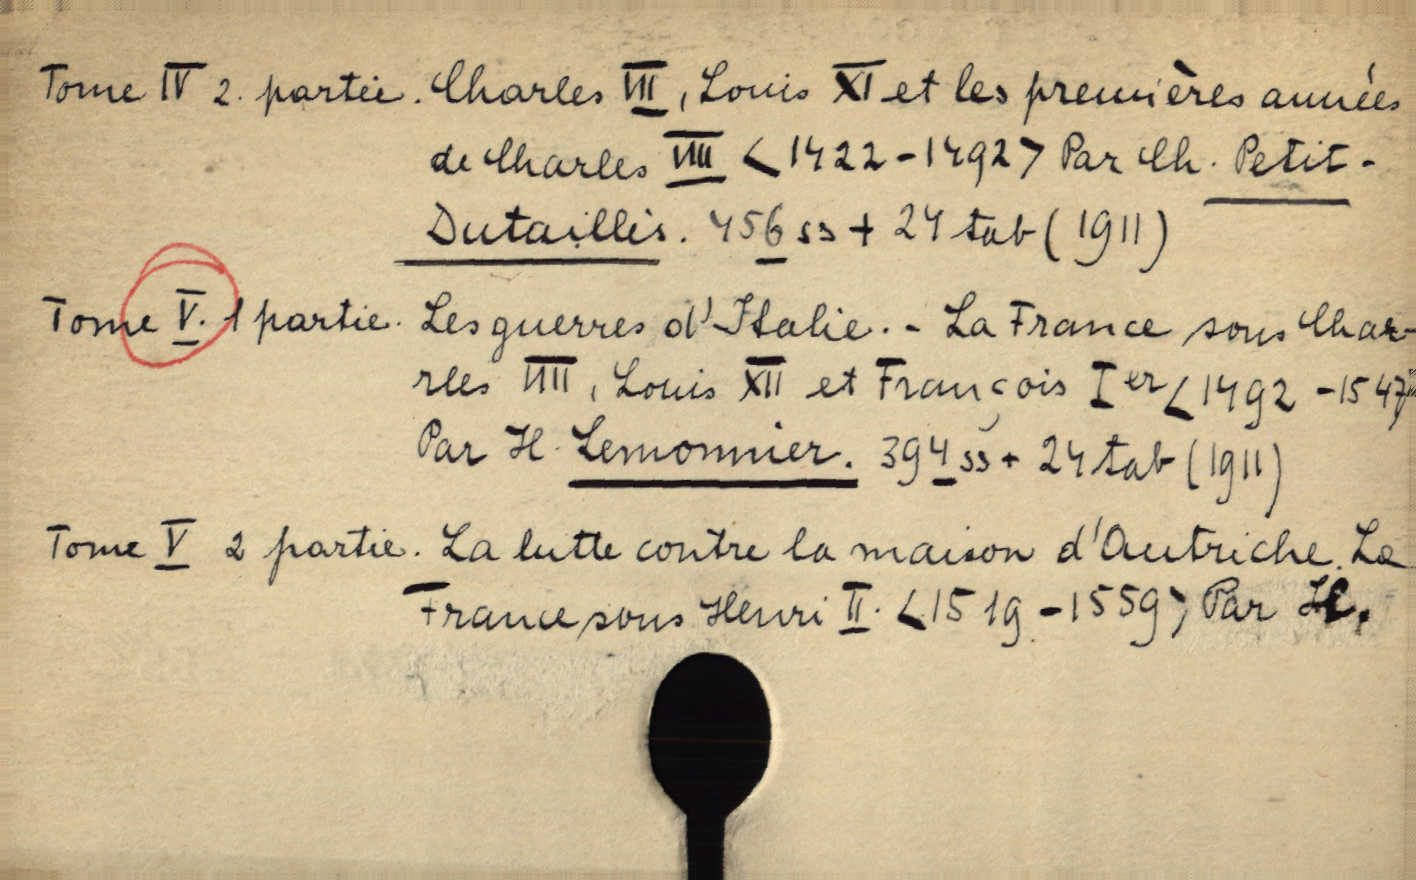 Tome IV 2. partie. Charles VII, Louis XI et les premières années
de Charles VIII <1422-1492> Par Ch. Petit-
Dutaillis. 456 ss + 24 tab (1911)
Tome V. 1 partie. Les guerres d'Italie. - La France sous Char-
rles VIII, Louis XII et François Ier <1492-1547>
Par H. Lemonnier. 394 ss + 24 tab (1911)
Tome V 2 partie. La lutte contre la maison d'Autriche. La
France sous Henri II. <1519-1559> Par H.